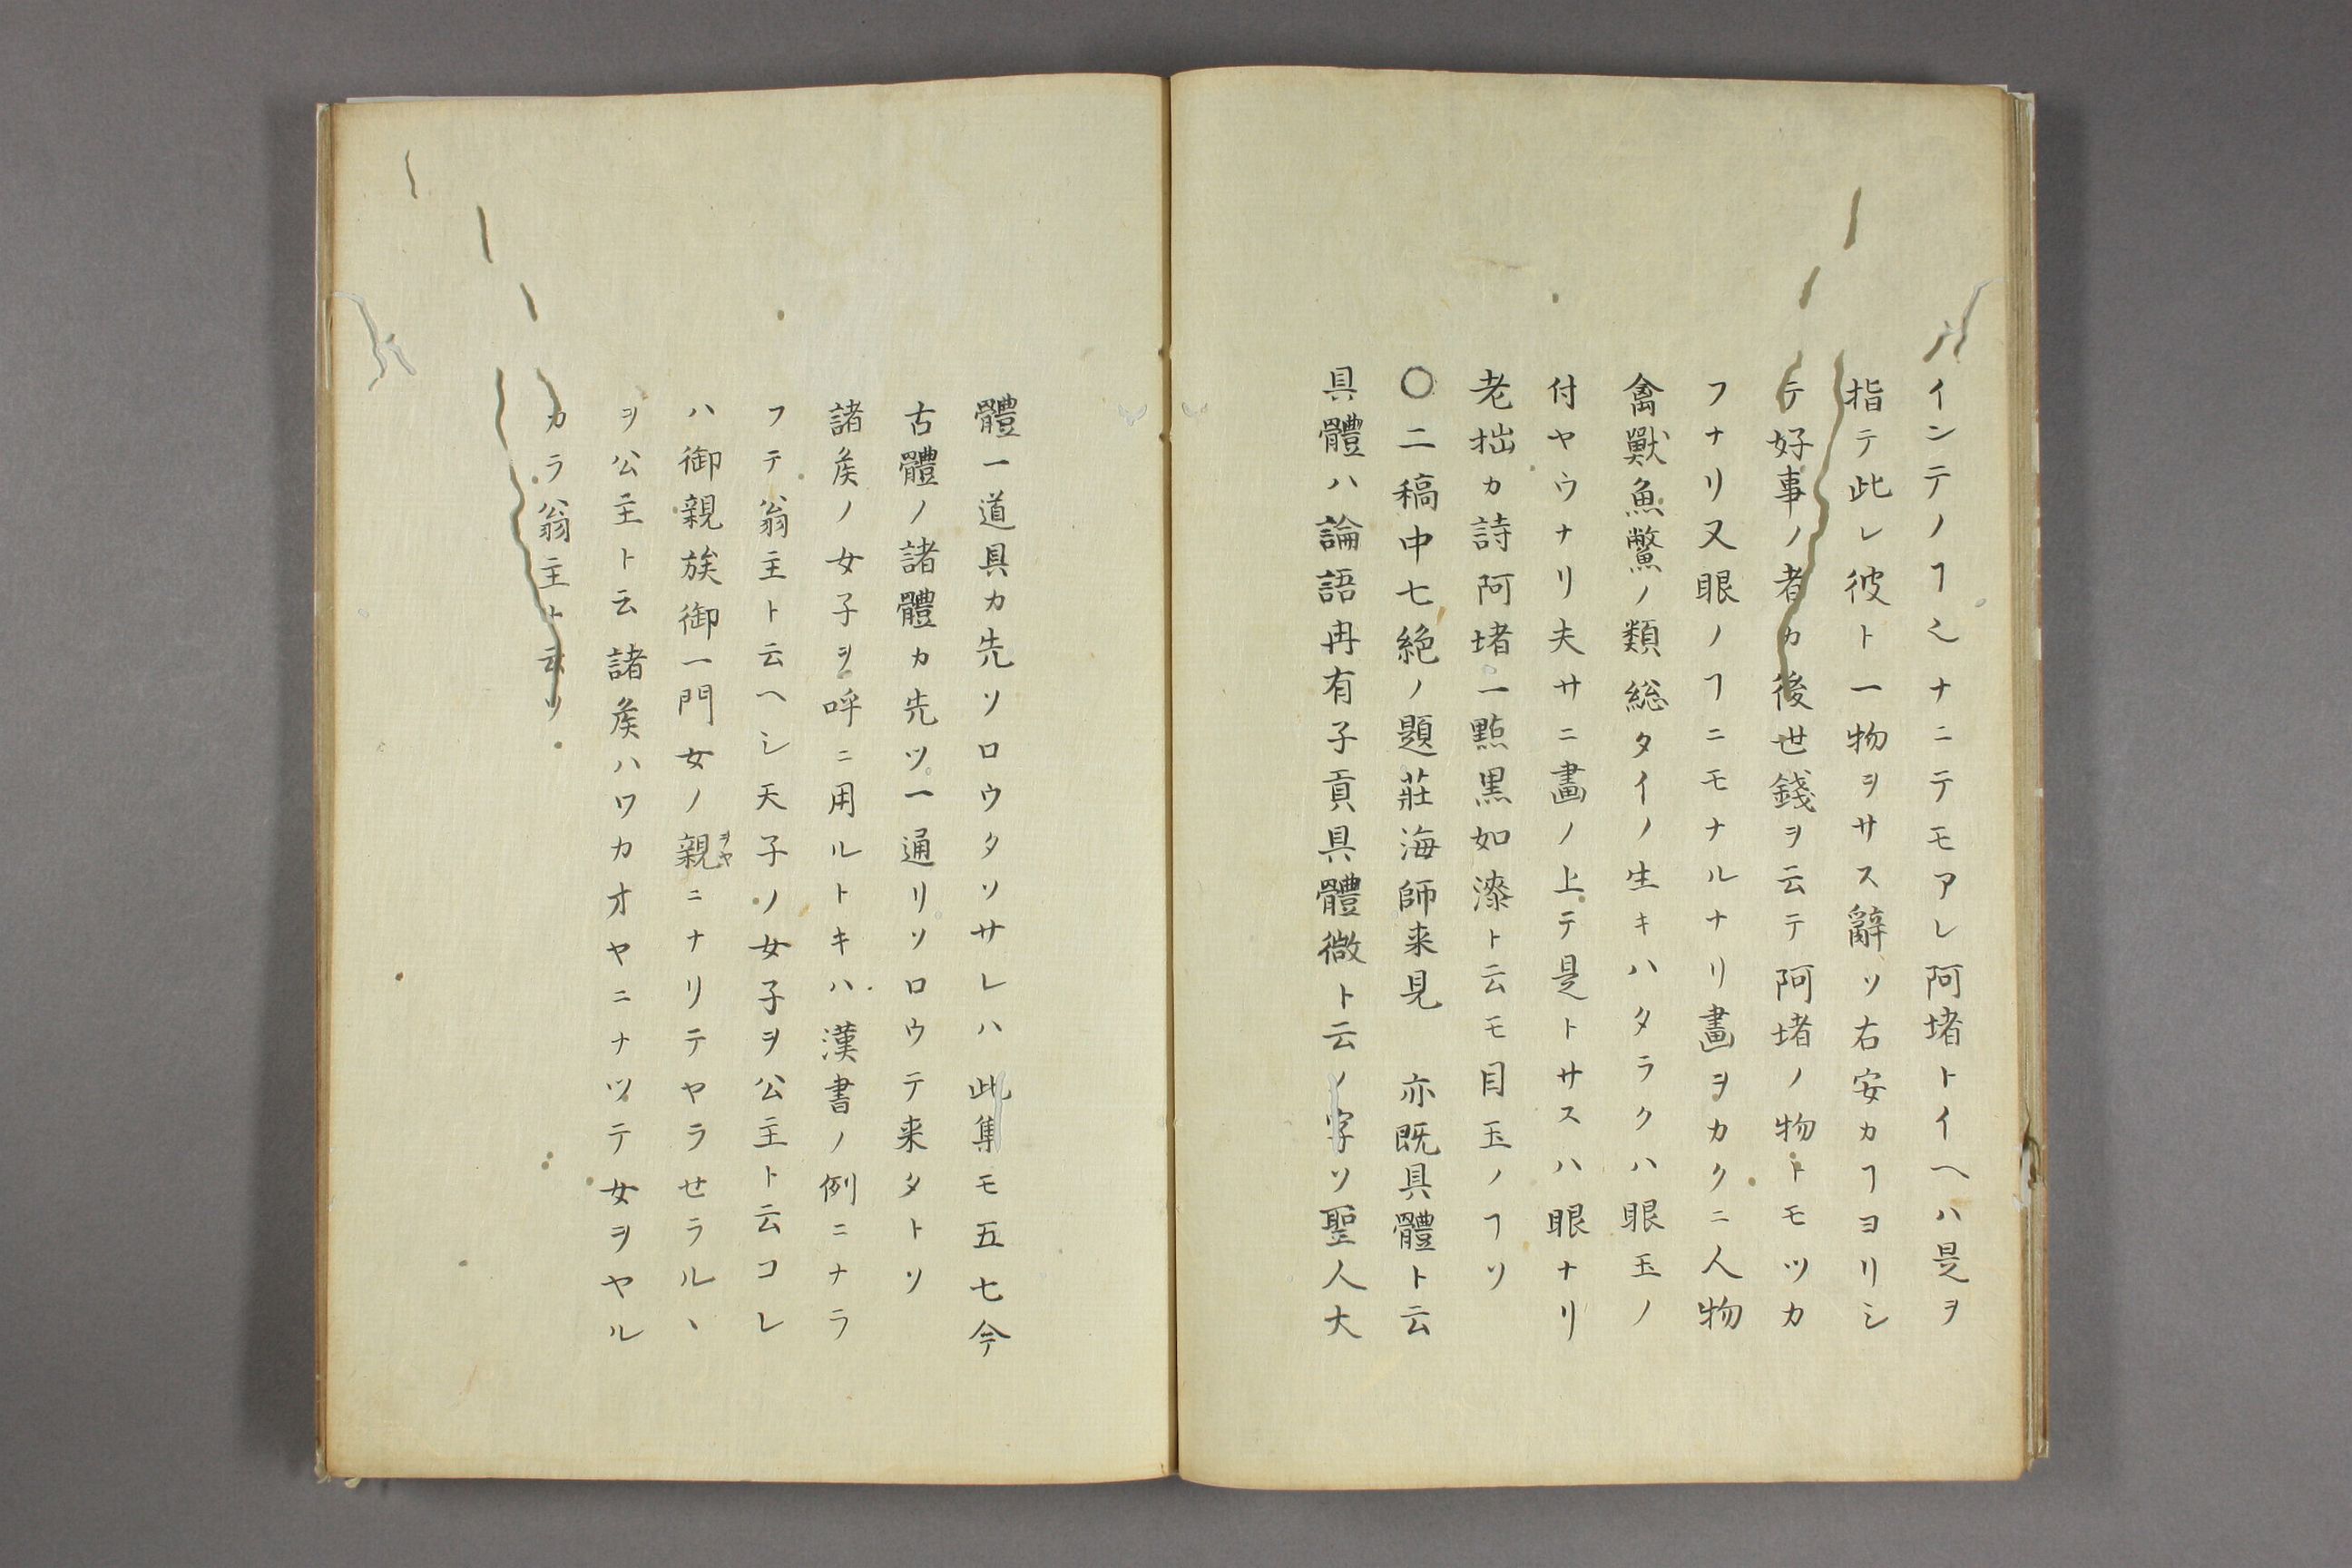 インテノヿ也ナニテモアレ阿堵トイヘハ是ヲ
指テ此レ彼ト一物ヲサス辭ソ右安カヿヨリシ
テ好事ノ者カ後世錢ヲ云テ阿堵ノ物トモツカ
フナリ又眼ノヿニモナルナリ畫ヲカクニ人物
禽獸魚鱉ノ類総タイノ生キハタラクハ眼玉ノ
付ヤウナリ夫サニ畫ノ上テ是トサスハ眼ナリ
老拙カ詩阿堵一點黒如漆ト云モ目玉ノヿソ
〇二稿中七絶ノ題莊海師来見 亦既具體ト云
具體ハ論語冉有子貢具體微ト云ノ字ソ聖人大
體一道具カ先ソロウタソサレハ此集モ五七今
古體ノ諸體カ先ツ一通リソロウテ来タトソ
諸矦ノ女子ヲ呼ニ用ルトキハ漢書ノ例ニナラ
フテ翁主ト云ヘシ天子ノ女子ヲ公主ト云コレ
ハ御親族御一門女ノ親ヲヤニナリテヤラせラルヽ
ヲ公主ト云諸矦ハワカオヤニナツテ女ヲヤル
カラ翁主ト云ソ